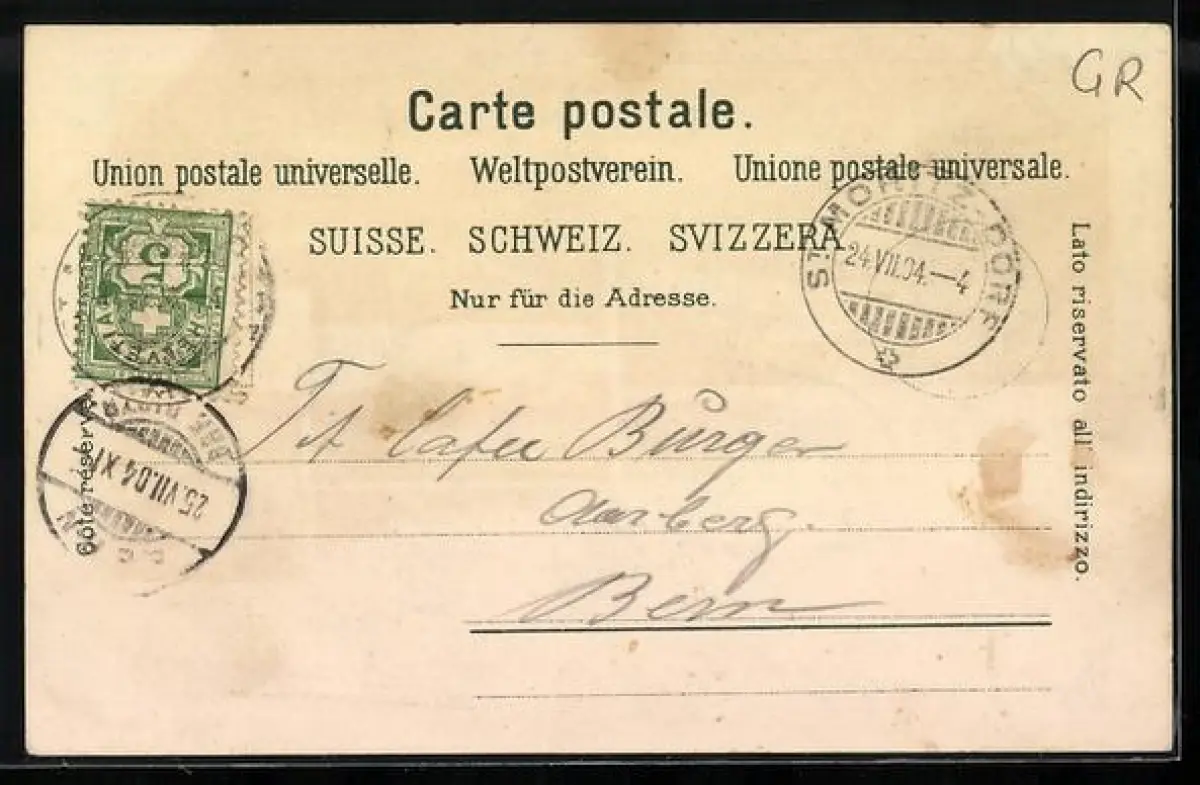 GR
Carte postale.
Union postale universelle. Weltpostverein. Unione postale universale.
SUISSE. SCHWEIZ. SVIZZERA
Nur für die Adresse.
ST. MORITZ-DORF
24.VII.04.–4
5
HELVETIA
25.VII.04 XI
Côté réservé
Lato riservato all' indirizzo.
Tit Cafee Bürger
Aarberg.
Bern